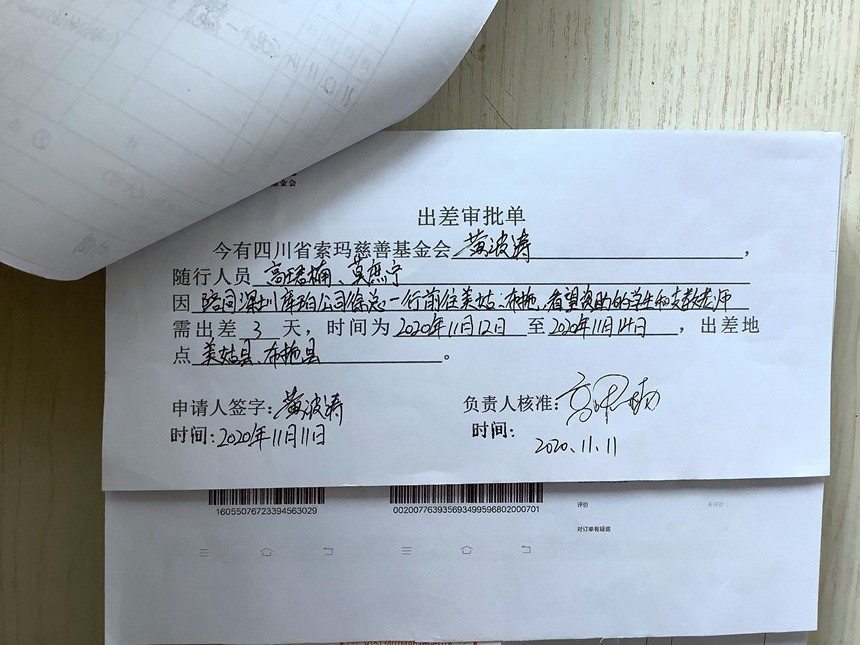 金会
出差审批单
今有四川省索玛慈善基金会 黄波涛 ，
随行人员 高珺楠、莫庶宁
因 陪同深圳库珀公司徐总一行前往美姑、布拖、看望资助的学生和支教老师
需出差 3 天，时间为 2020年11月12日 至 2020年11月14日 ，出差地
点 美姑县、布拖县 。
申请人签字：黄波涛 负责人核准：
时间：2020年11月11日 时间：
2020.11.11
16055076723394563029 0020077639356934995968020000701
评价
对订单有疑惑